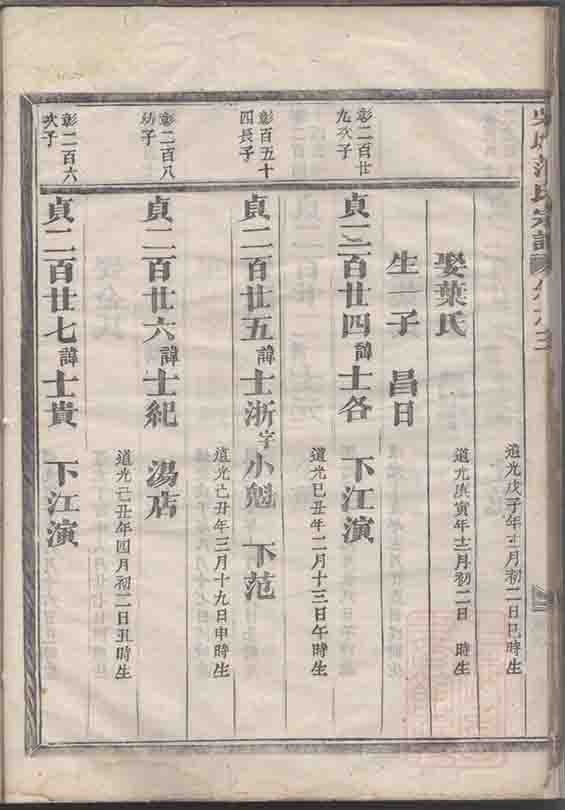 范氏宗譜
道光戊子年十二月初二日巳時生
娶葉氏
道光庚寅年十二月初二日 時生
生一子 昌日
彰二百廿九次子
貞二百廿四 諱士各 下江演
道光己丑年二月十三日午時生
彰百五十四長子
貞二百廿五 諱士浙 字小魁 下范
道光己丑年三月十九日申時生
彰二百八幼子
貞二百廿六 諱士紀 湯店
道光己丑年四月初二日丑時生
彰二百六次子
貞二百廿七 諱士貴 下江演